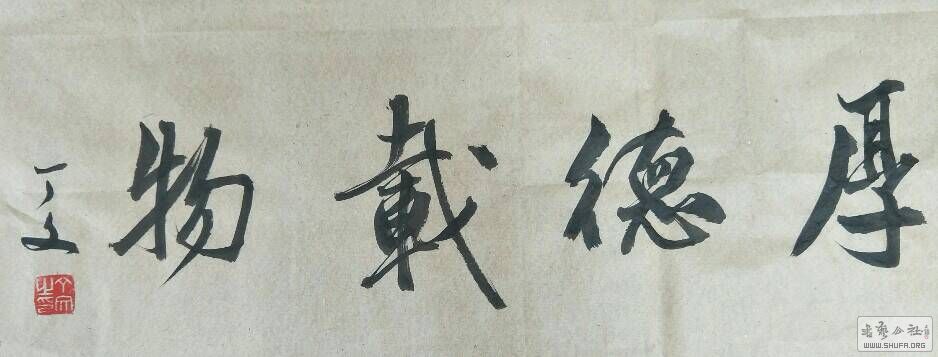 厚德載物
丁文
书艺公社
WWW.SHUFA.ORG